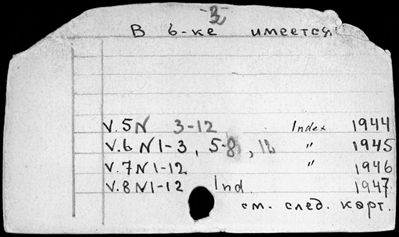 -3-
В б-ке имеется:
V.5 N 3-12 Index 1944
V.6 N 1-3, 5-8, 12 " 1945
V.7 N 1-12 " 1946
V.8 N 1-12 Ind. 1947
см. след. карт.